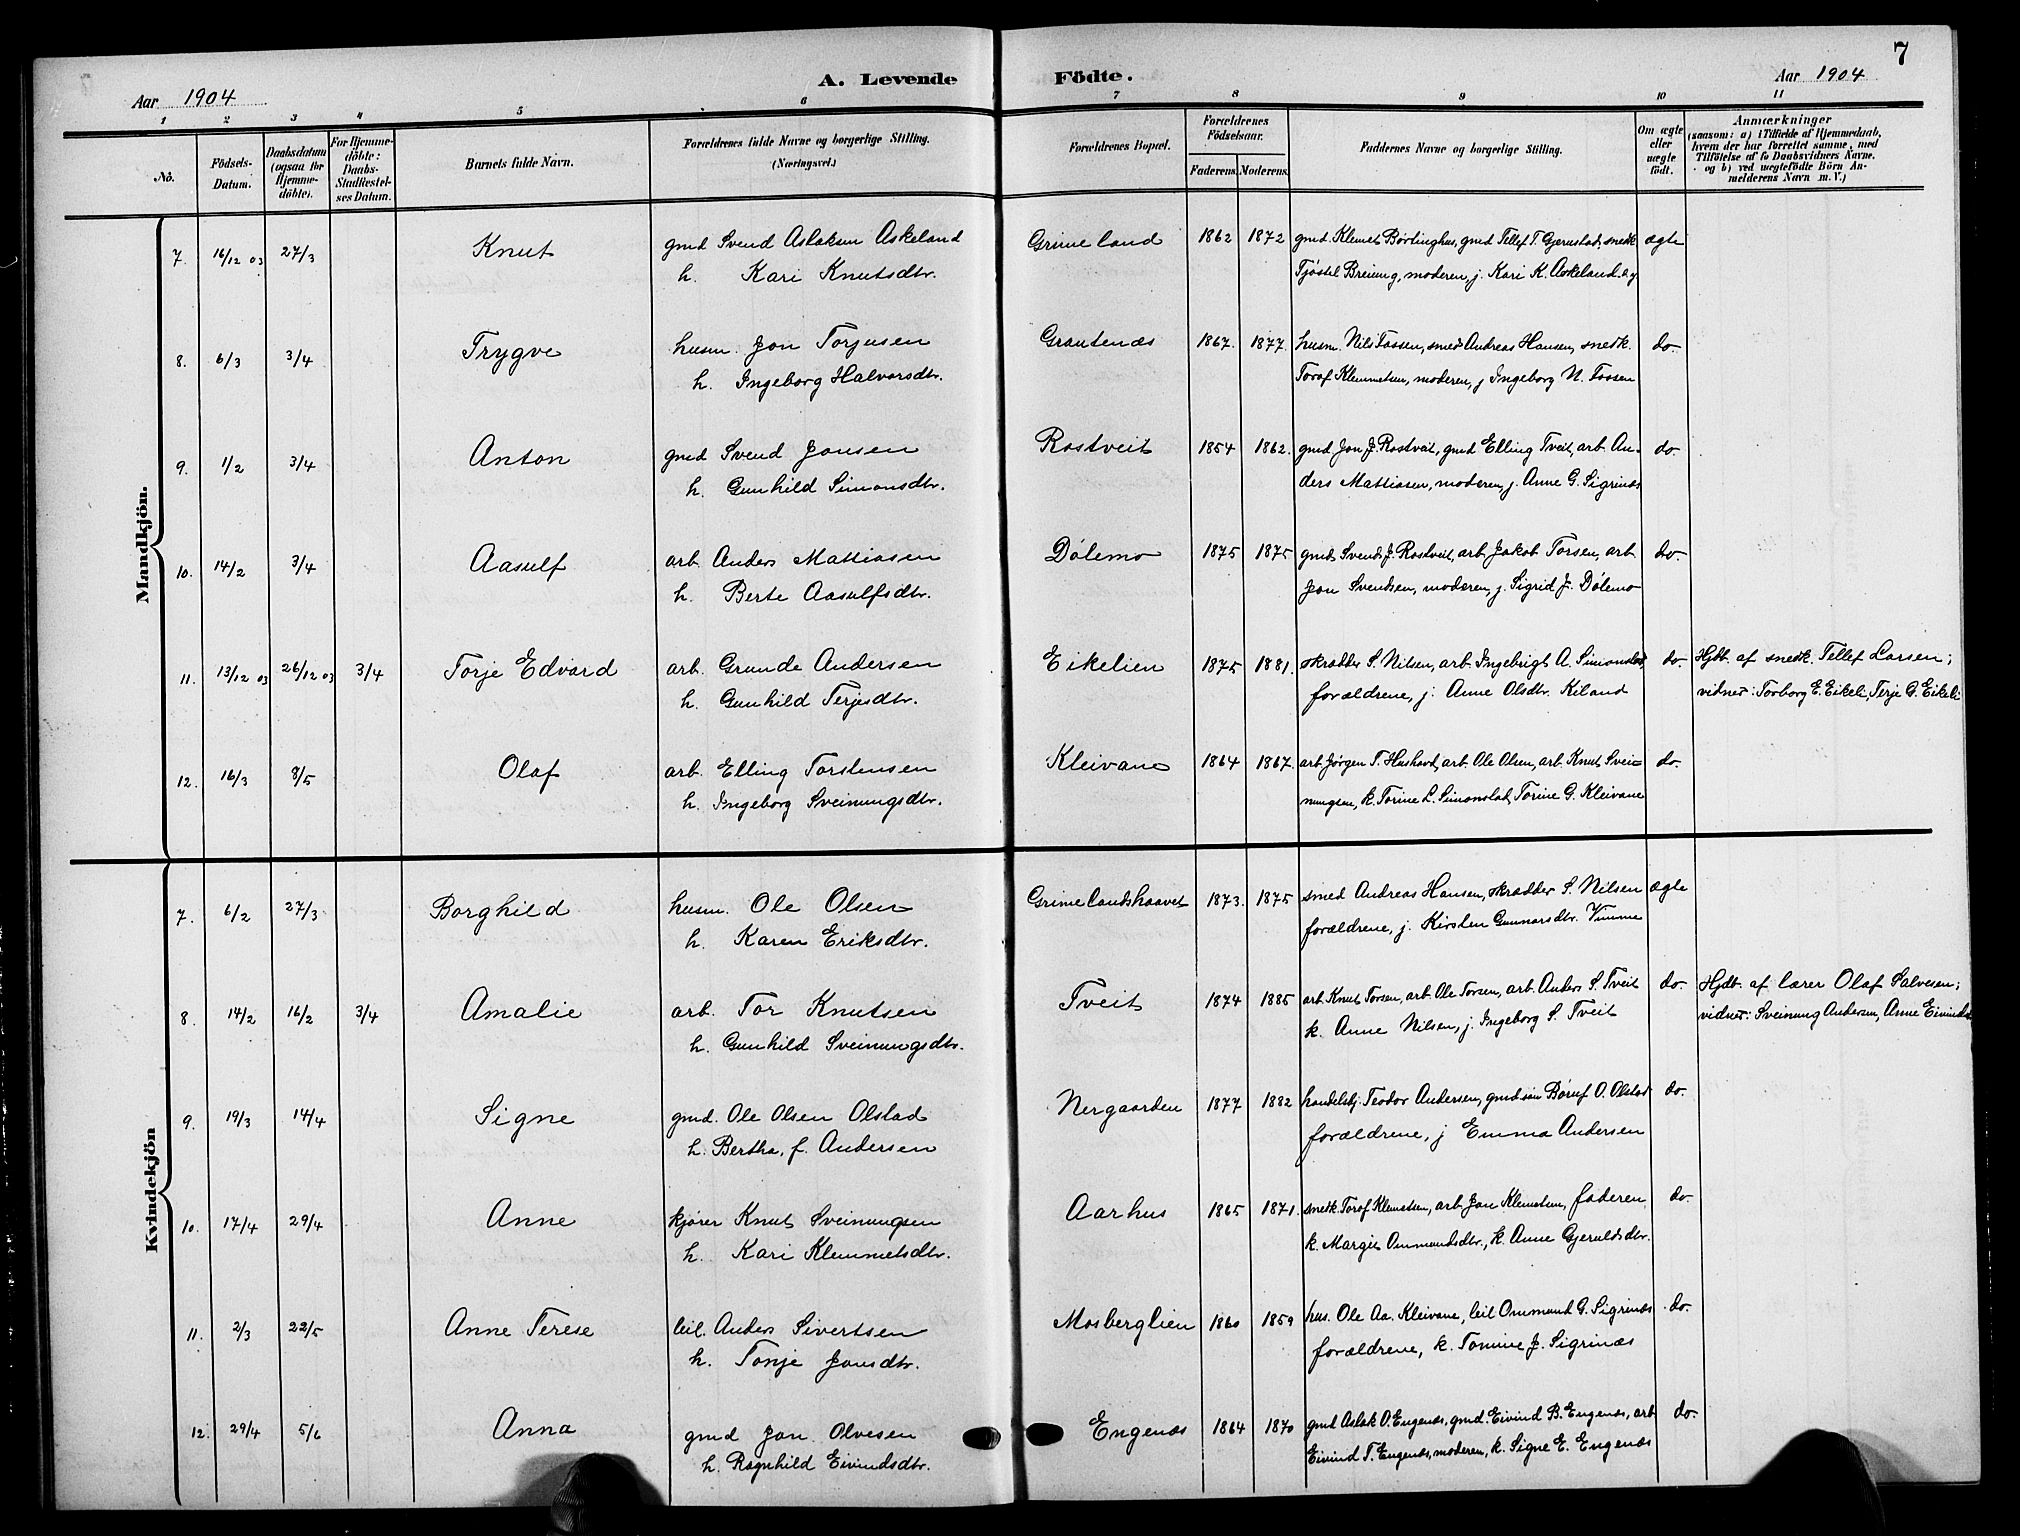 7
A. Levende Födte.
Aar 1904
Aar 1904
1 2 3 4 5 6 7 8 9 10 11
No.
Födsels-Datum.
Daabsdatum (ogsaa for Hjemme-döbte).
For Hjemme-döbte: Daabs-Stadfæstel-ses Datum.
Barnets fulde Navn.
Forældrenes fulde Navne og borgerlige Stilling. (Næringsvei.)
Forældrenes Bopæl.
Forældrenes Födselsaar.
Faderens. Moderens.
Faddernes Navne og borgerlige Stilling.
Om ægte eller uægte født.
Anmærkninger
(saasom: a) i Tilfælde af Hjemmedaab,
hvem der har forrettet samme, med
Tilföielse af to Daabsvidners Navne.
og b) ved uægtefödte Börn An-
melderens Navn m. V.)
Mandkjön.
7. 16/12 03 27/3 Knut gmd Svend Aslaksen Askeland Grimeland 1862 1872 gmd. Klemet Børlinghus, gmd Tellef T. Gjerustad, snedk ægte
h. Kari Knutsdtr. Tjøstel Breiung, moderen, j. Kari K. Askeland
8. 6/3 3/4 Trygve husm. Jon Torjusen Grautenæs 1867. 1877. husm. Nils Tassen, smed Andreas Hansen, snedk. do.
h. Ingeborg Halvorsdtr. Torof Klemmetsen, moderen, j Ingeborg N. Tassen
9. 1/2 3/4 Anton gmd Svend Jonsen Rostveit 1854 1862. gmd Jon J. Rostveit, gmd Elling Tveit, arb. An- do.
h. Gunhild Simonsdtr. ders Mattiasen, moderen, j. Anne G. Sigrinæs
10. 14/2 3/4 Aasulf arb. Anders Mattiasen Dølemo 1875 1875 gmd Svend J. Rostveit, arb. Jakob Torsen, arb do.
h. Berte Aasulfsdtr. Jon Svendsen, moderen, j. Sigrid J. Dølemo
11. 13/12 03 26/12 03 3/4 Torje Edvard arb. Grunde Andersen Eikelien 1875 1881. skrædder S. Nilsen, arb. Ingebrigt A. Simonstad, do. Hjdt. af snedk. Tellef Larsen;
h. Gunhild Terjesdtr. forældrene, j. Anne Olsdtr. Kiland vidner: Torborg E. Eikeli, Terje G. Eikeli
12. 16/3 8/5 Olaf arb. Elling Torstensen Kleivane 1864 1867. arb. Jørgen T. Hushovd, arb. Ole Olsen, arb. Knut Svei- do.
h. Ingeborg Sveinungsdtr. nungsen, k. Torine L. Simonstad, Torine G. Kleivane
Kvindekjön
7. 6/2 27/3 Borghild husm. Ole Olsen Grimelandshaavet 1873. 1875 smed Andreas Hansen, skrædder S. Nilsen ægte
h. Karen Eriksdtr. forældrene, j. Kirsten Gunnarsdtr. Vimme
8. 14/2 16/2 3/4 Amalie arb. Tor Knutsen Tveit 1874 1885 arb. Knut Torsen, arb. Ole Torsen, arb. Anders S. Tveit do. Hjdt. af lærer Olaf Salvesen;
h. Gunhild Sveinungsdtr. k. Anne Nilsen, j. Ingeborg S. Tveit vidner: Sveinung Andersen, Anne Eivindsd
9. 19/3 14/4 Signe gmd. Ole Olsen Olstad Nergaarden 1877 1882 handelsbj. Teodor Andersen, gmdsøn Børuf O. Olstad do.
h. Bertha, f. Andersen forældrene, j Emma Andersen
10. 17/4 29/4 Anne kjører Knut Sveinungsen Aarhus 1865 1871. snedk. Torof Klemetsen, arb. Jon Klemetsen, faderen, do.
h. Kari Klemmetsdtr. k. Margit Ommundsdtr., k. Anne Gjeruldsdtr.
11. 2/3 22/5 Anne Terese leil. Anders Sivertsen Mosberglien 1860 1859 hus. Ole Aa. Kleivane, leil Ommund G. Sigrinæs do.
h. Tonje Jonsdtr. forældrene, k. Tomine J. Sigrinæs
12. 29/4 5/6 Anna gmd Jon Olvesen Engenæs 1864 1870 gmd Aslak O. Engenæs, gmd. Eivind B. Engenæs, arb do.
h. Ragnhild Eivindsdtr. Eivind T. Engenæs, moderen, k. Signe E. Engenæs